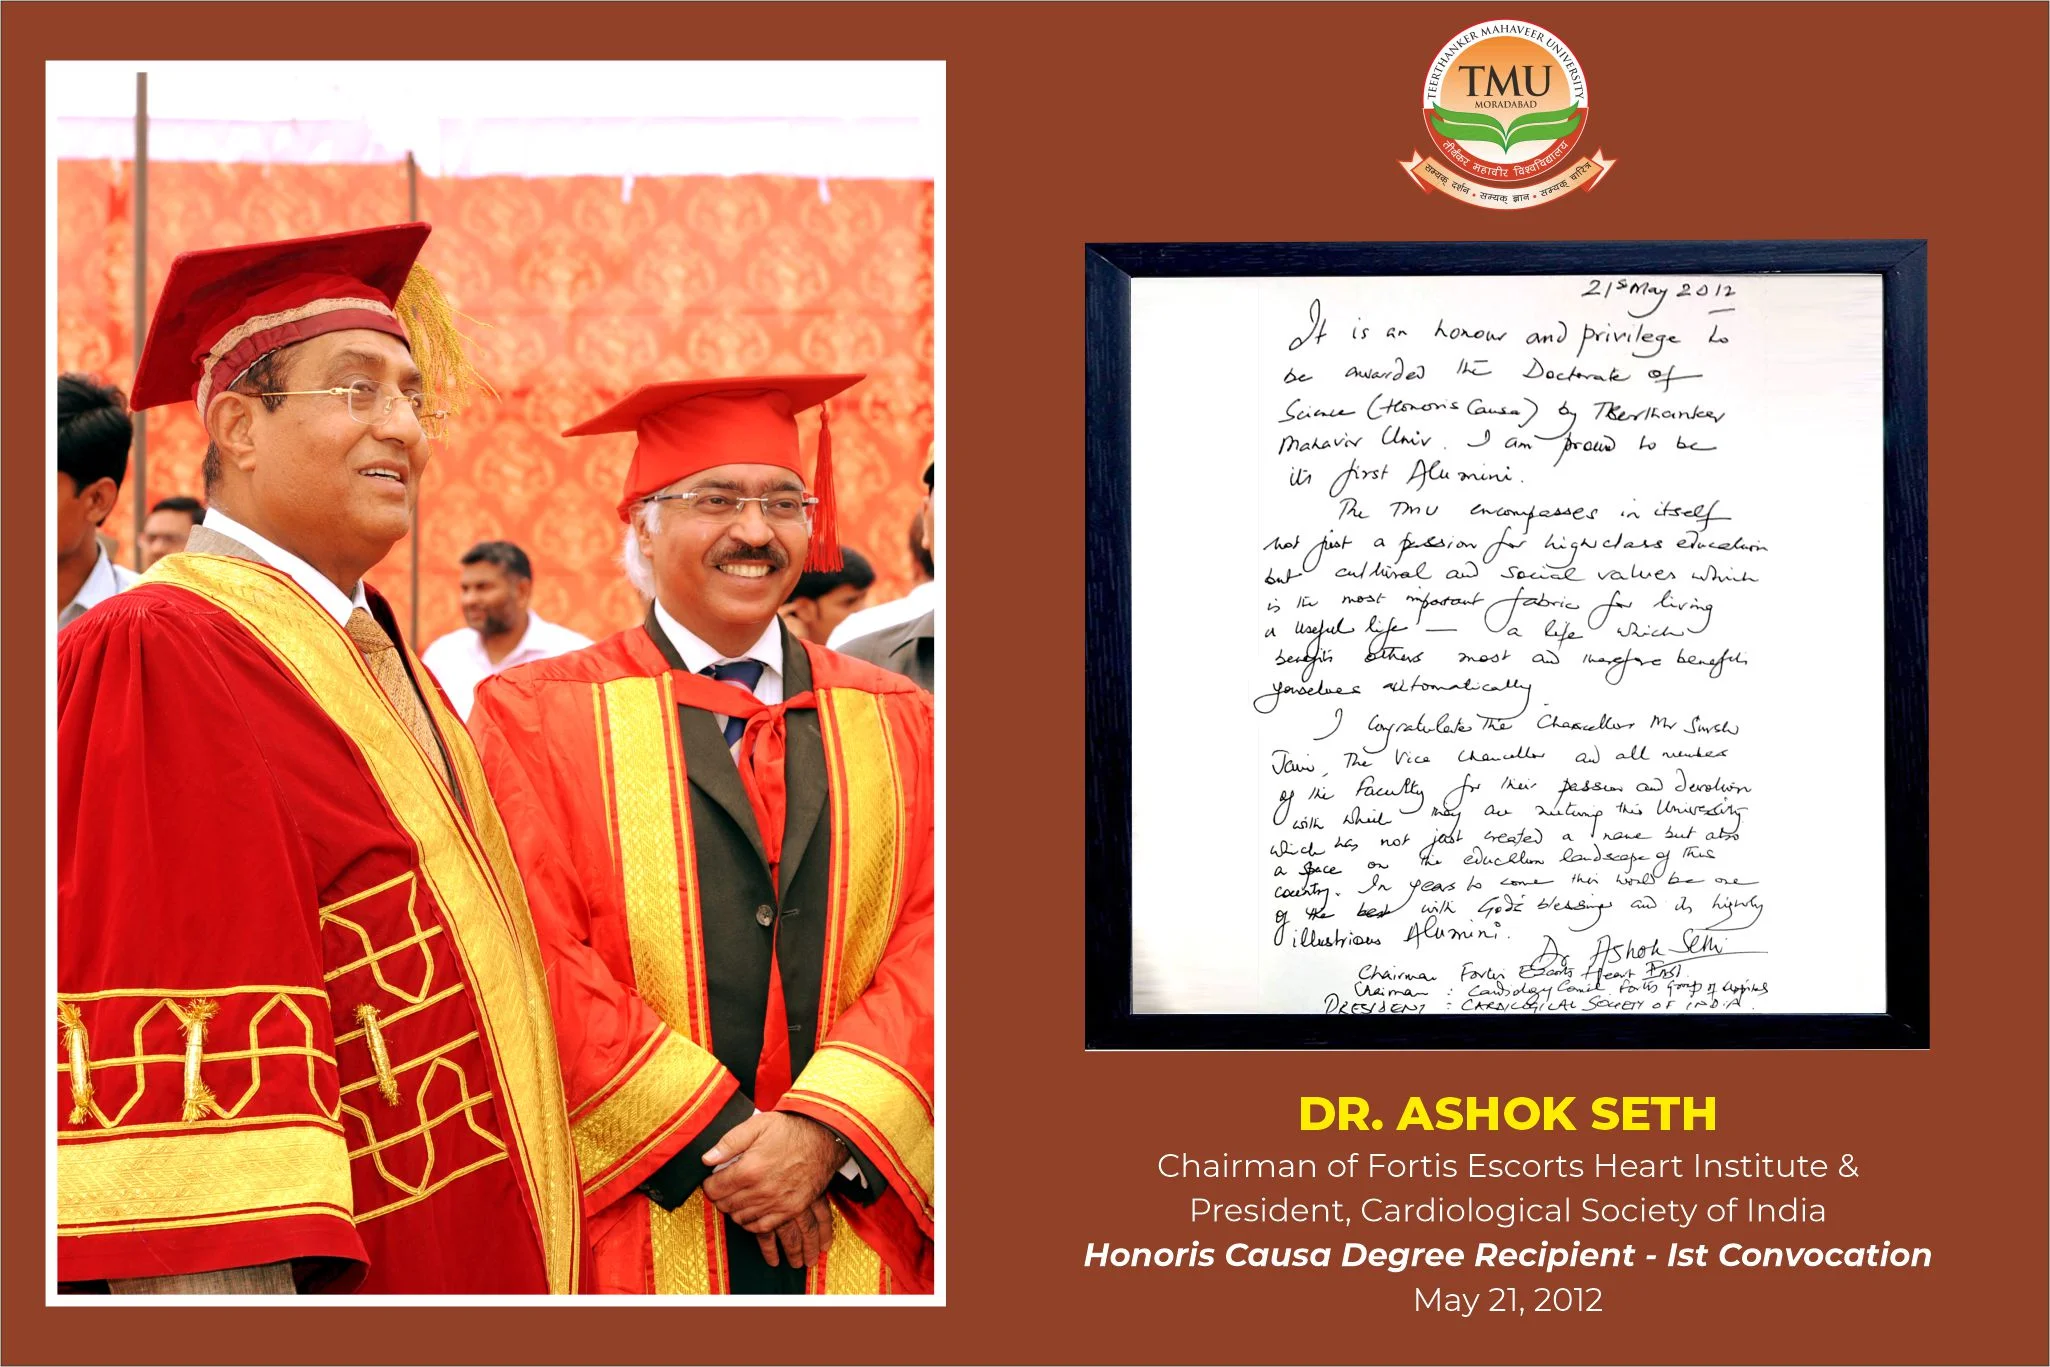 TEERTHANKER MAHAVEER UNIVERSITY
TMU
MORADABAD
तीर्थंकर महावीर विश्वविद्यालय
सम्यक् दर्शन • सम्यक् ज्ञान • सम्यक् चारित्र
21st May 2012
It is an honour and privilege to
be awarded the Doctorate of
Science (Honoris Causa) by Teerthanker
Mahavir Univ. I am proud to be
its first Alumini.
The TMU encompasses in itself
not just a passion for high class education
but cultural and social values which
is the most important fabric for living
a useful life — a life which
benefits others most and therefore benefits
yourselves automatically
I congratulate the Chancellor Mr Suresh
Jain, The Vice Chancellor and all members
of the Faculty for their passion and devotion
with which they are nurturing this University
which has not just created a name but also
a space on the education landscape of this
country. In years to come this would be one
of the best with God's blessings and its highly
illustrious Alumini.
Dr Ashok Seth
Chairman Fortis Escorts Heart Inst.
Chairman : Cardiology Council Fortis Group of Hospitals
PRESIDENT : CARDIOLOGICAL SOCIETY OF INDIA.
DR. ASHOK SETH
Chairman of Fortis Escorts Heart Institute &
President, Cardiological Society of India
Honoris Causa Degree Recipient - Ist Convocation
May 21, 2012